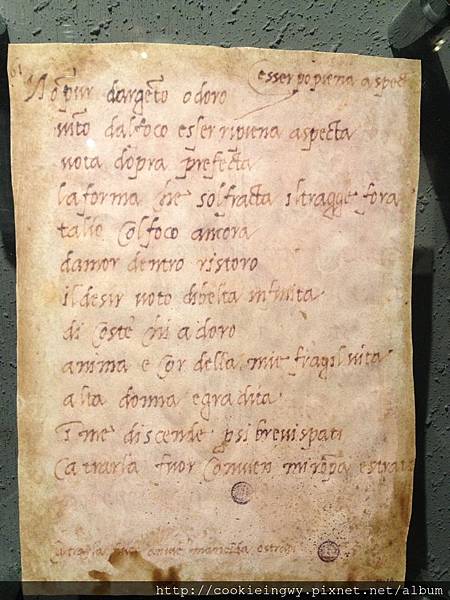 esser po piena aspect
No pur dargeto o doro
uito dalfoco esser ripiena aspecta
uota dopra prefecta
la forma che sol fracta il tragge fora
talio colfoco ancora
damor dentro ristoro
il desir uoto dibelta infinita
di coste chi adoro
anima e cor della mie fragil uita
alta donna e gradita
I me discende p si breui spati
Ca trarla fuor couien mi ropa e strati
http://cookieingwy.pixnet.net/album